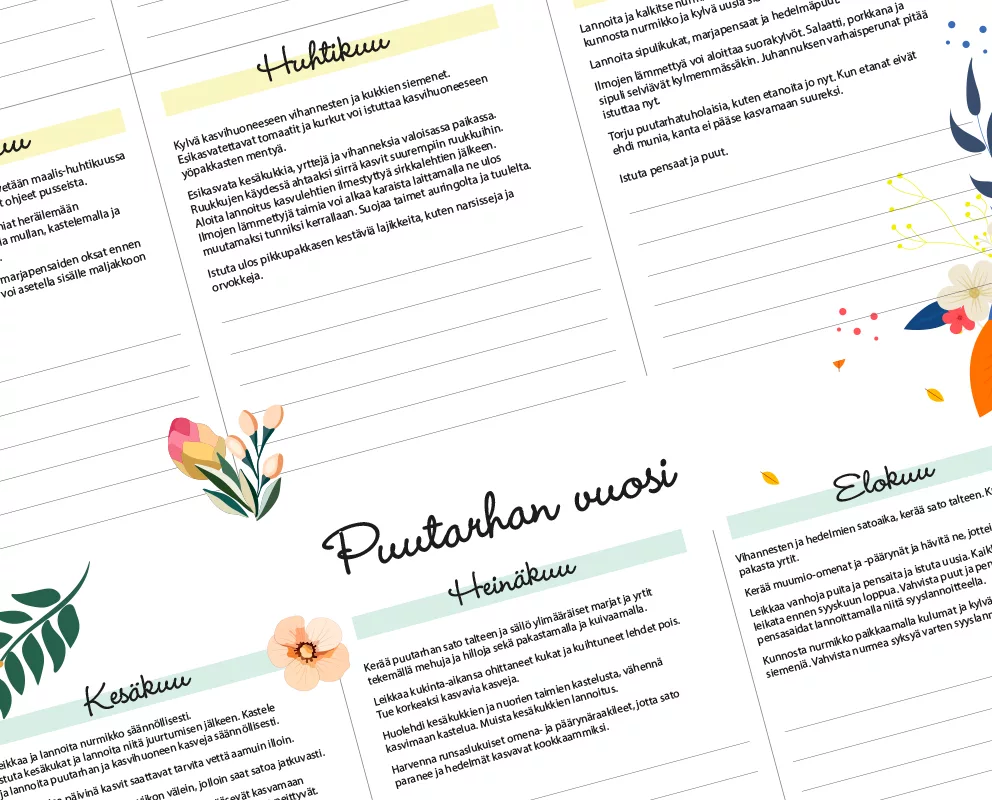 uu
vetään maalis-huhtikuussa
t ohjeet pusseista.
niat heräilemään
a mullan, kastelemalla ja
marjapensaiden oksat ennen
voi asetella sisälle maljakkoon
Huhtikuu
Kylvä kasvihuoneeseen vihannesten ja kukkien siemenet.
Esikasvatettavat tomaatit ja kurkut voi istuttaa kasvihuoneeseen
yöpakkasten mentyä.
Esikasvata kesäkukkia, yrttejä ja vihanneksia valoisassa paikassa.
Ruukkujen käydessä ahtaaksi siirrä kasvit suurempiin ruukkuihin.
Aloita lannoitus kasvulehtien ilmestyttyä sirkkalehtien jälkeen.
Ilmojen lämmettyjä taimia voi alkaa karaista laittamalla ne ulos
muutamaksi tunniksi kerrallaan. Suojaa taimet auringolta ja tuulelta.
Istuta ulos pikkupakkasen kestäviä lajikkeita, kuten narsisseja ja
orvokkeja.
Lannoita ja kalkitse
kunnosta nurmikko ja kylvä uusia
Lannoita sipulikukat, marjapensaat ja hedelmäpuut.
Ilmojen lämmettyä voi aloittaa suorakylvöt. Salaatti, porkkana ja
sipuli selviävät kylmemmässäkin. Juhannuksen varhaisperunat pitää
istuttaa nyt.
Torju puutarhatuholaisia, kuten etanoita jo nyt. Kun etanat eivät
ehdi munia, kanta ei pääse kasvamaan suureksi.
Istuta pensaat ja puut.
Puutarhan vuosi
Kesäkuu
eikkaa ja lannoita nurmikko säännöllisesti.
stuta kesäkukat ja lannoita niitä juurtumisen jälkeen. Kastele
ja lannoita puutarhan ja kasvihuoneen kasveja säännöllisesti.
päivinä kasvit saattavat tarvita vettä aamuin illoin.
viikon välein, jolloin saat satoa jatkuvasti.
pääsevät kasvamaan
Heinäkuu
Kerää puutarhan sato talteen ja säilö ylimääräiset marjat ja yrtit
tekemällä mehuja ja hilloja sekä pakastamalla ja kuivaamalla.
Leikkaa kukinta-aikansa ohittaneet kukat ja kuihtuneet lehdet pois.
Tue korkeaksi kasvavia kasveja.
Huolehdi kesäkukkien ja nuorien taimien kastelusta, vähennä
kasvimaan kastelua. Muista kesäkukkien lannoitus.
Harvenna runsaslukuiset omena- ja päärynäraakileet, jotta sato
paranee ja hedelmät kasvavat kookkaammiksi.
Elokuu
Vihannesten ja hedelmien satoaika, kerää sato talteen.
pakasta yrtit.
Kerää muumio-omenat ja -päärynät ja hävitä ne, jottei
Leikkaa vanhoja puita ja pensaita ja istuta uusia.
leikata ennen syyskuun loppua. Vahvista puut ja
pensasaidat lannoittamalla niitä syyslannoitteella.
Kunnosta nurmikko paikkaamalla kulumat ja kylvä
siemeniä. Vahvista nurmea syksyä varten